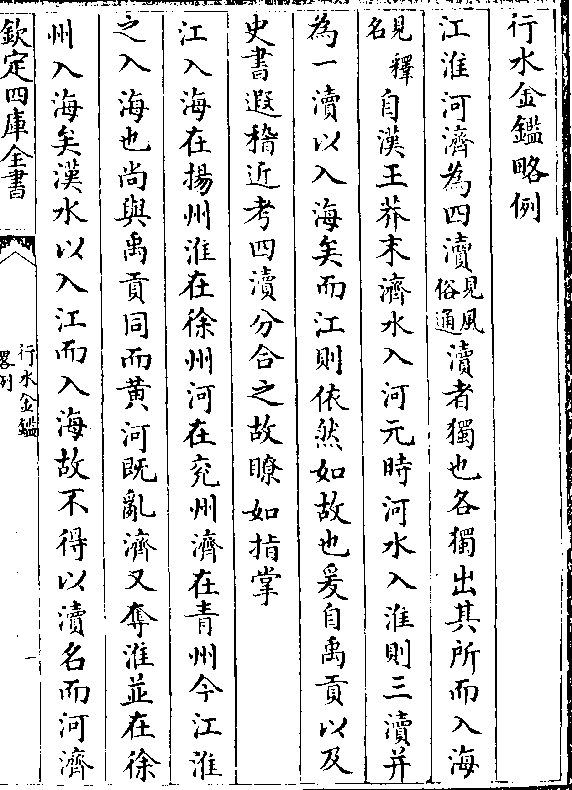 行水金鑑略例
江淮河濟為四瀆見風俗通瀆者獨也各獨出其所而入海
見釋名自漢王莽末濟水入河元時河水入淮則三瀆并
為一瀆以入海矣而江則依然如故也爰自禹貢以及
史書遐稽近考四瀆分合之故瞭如指掌
江入海在揚州淮在徐州河在兖州濟在青州今江淮
之入海也尚與禹貢同而黄河既亂濟又奪淮並在徐
州入海矣漢水以入江而入海故不得以瀆名而河濟
欽定四庫全書
行水金鑑
畧例
一